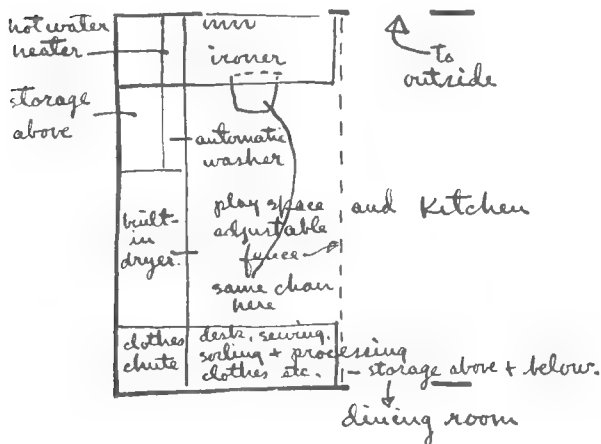 hot water
heater
ironer
to
outside
storage
above
automatic
washer
play space
adjustable
fence
and Kitchen
built-
in
dryer.
same chair
here
clothes
chute
desk, sewing,
sorting + processing
clothes etc.
storage above + below.
dining room